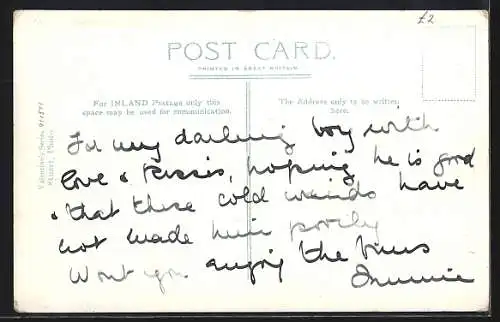 £2
POST CARD.
PRINTED IN GREAT BRITAIN
For INLAND Postage only this
space may be used for communication.
The Address only to be written
here.
Valentine's Series
For my darling boy with
love & kisses, hoping he is good
& that these cold winds have
not made him poorly
Wont you enjoy the